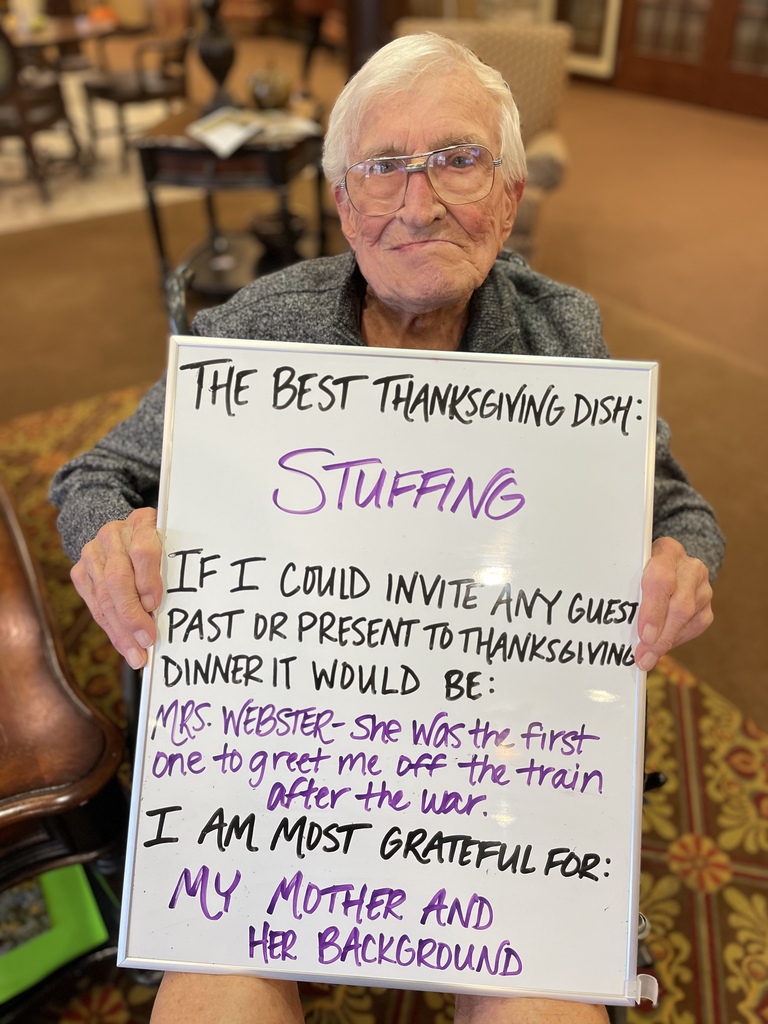 THE BEST THANKSGIVING DISH:
STUFFING
IF I COULD INVITE ANY GUEST
PAST OR PRESENT TO THANKSGIVING
DINNER IT WOULD BE:
MRS. WEBSTER- She was the first
one to greet me off the train
after the war.
I AM MOST GRATEFUL FOR:
MY MOTHER AND
HER BACKGROUND